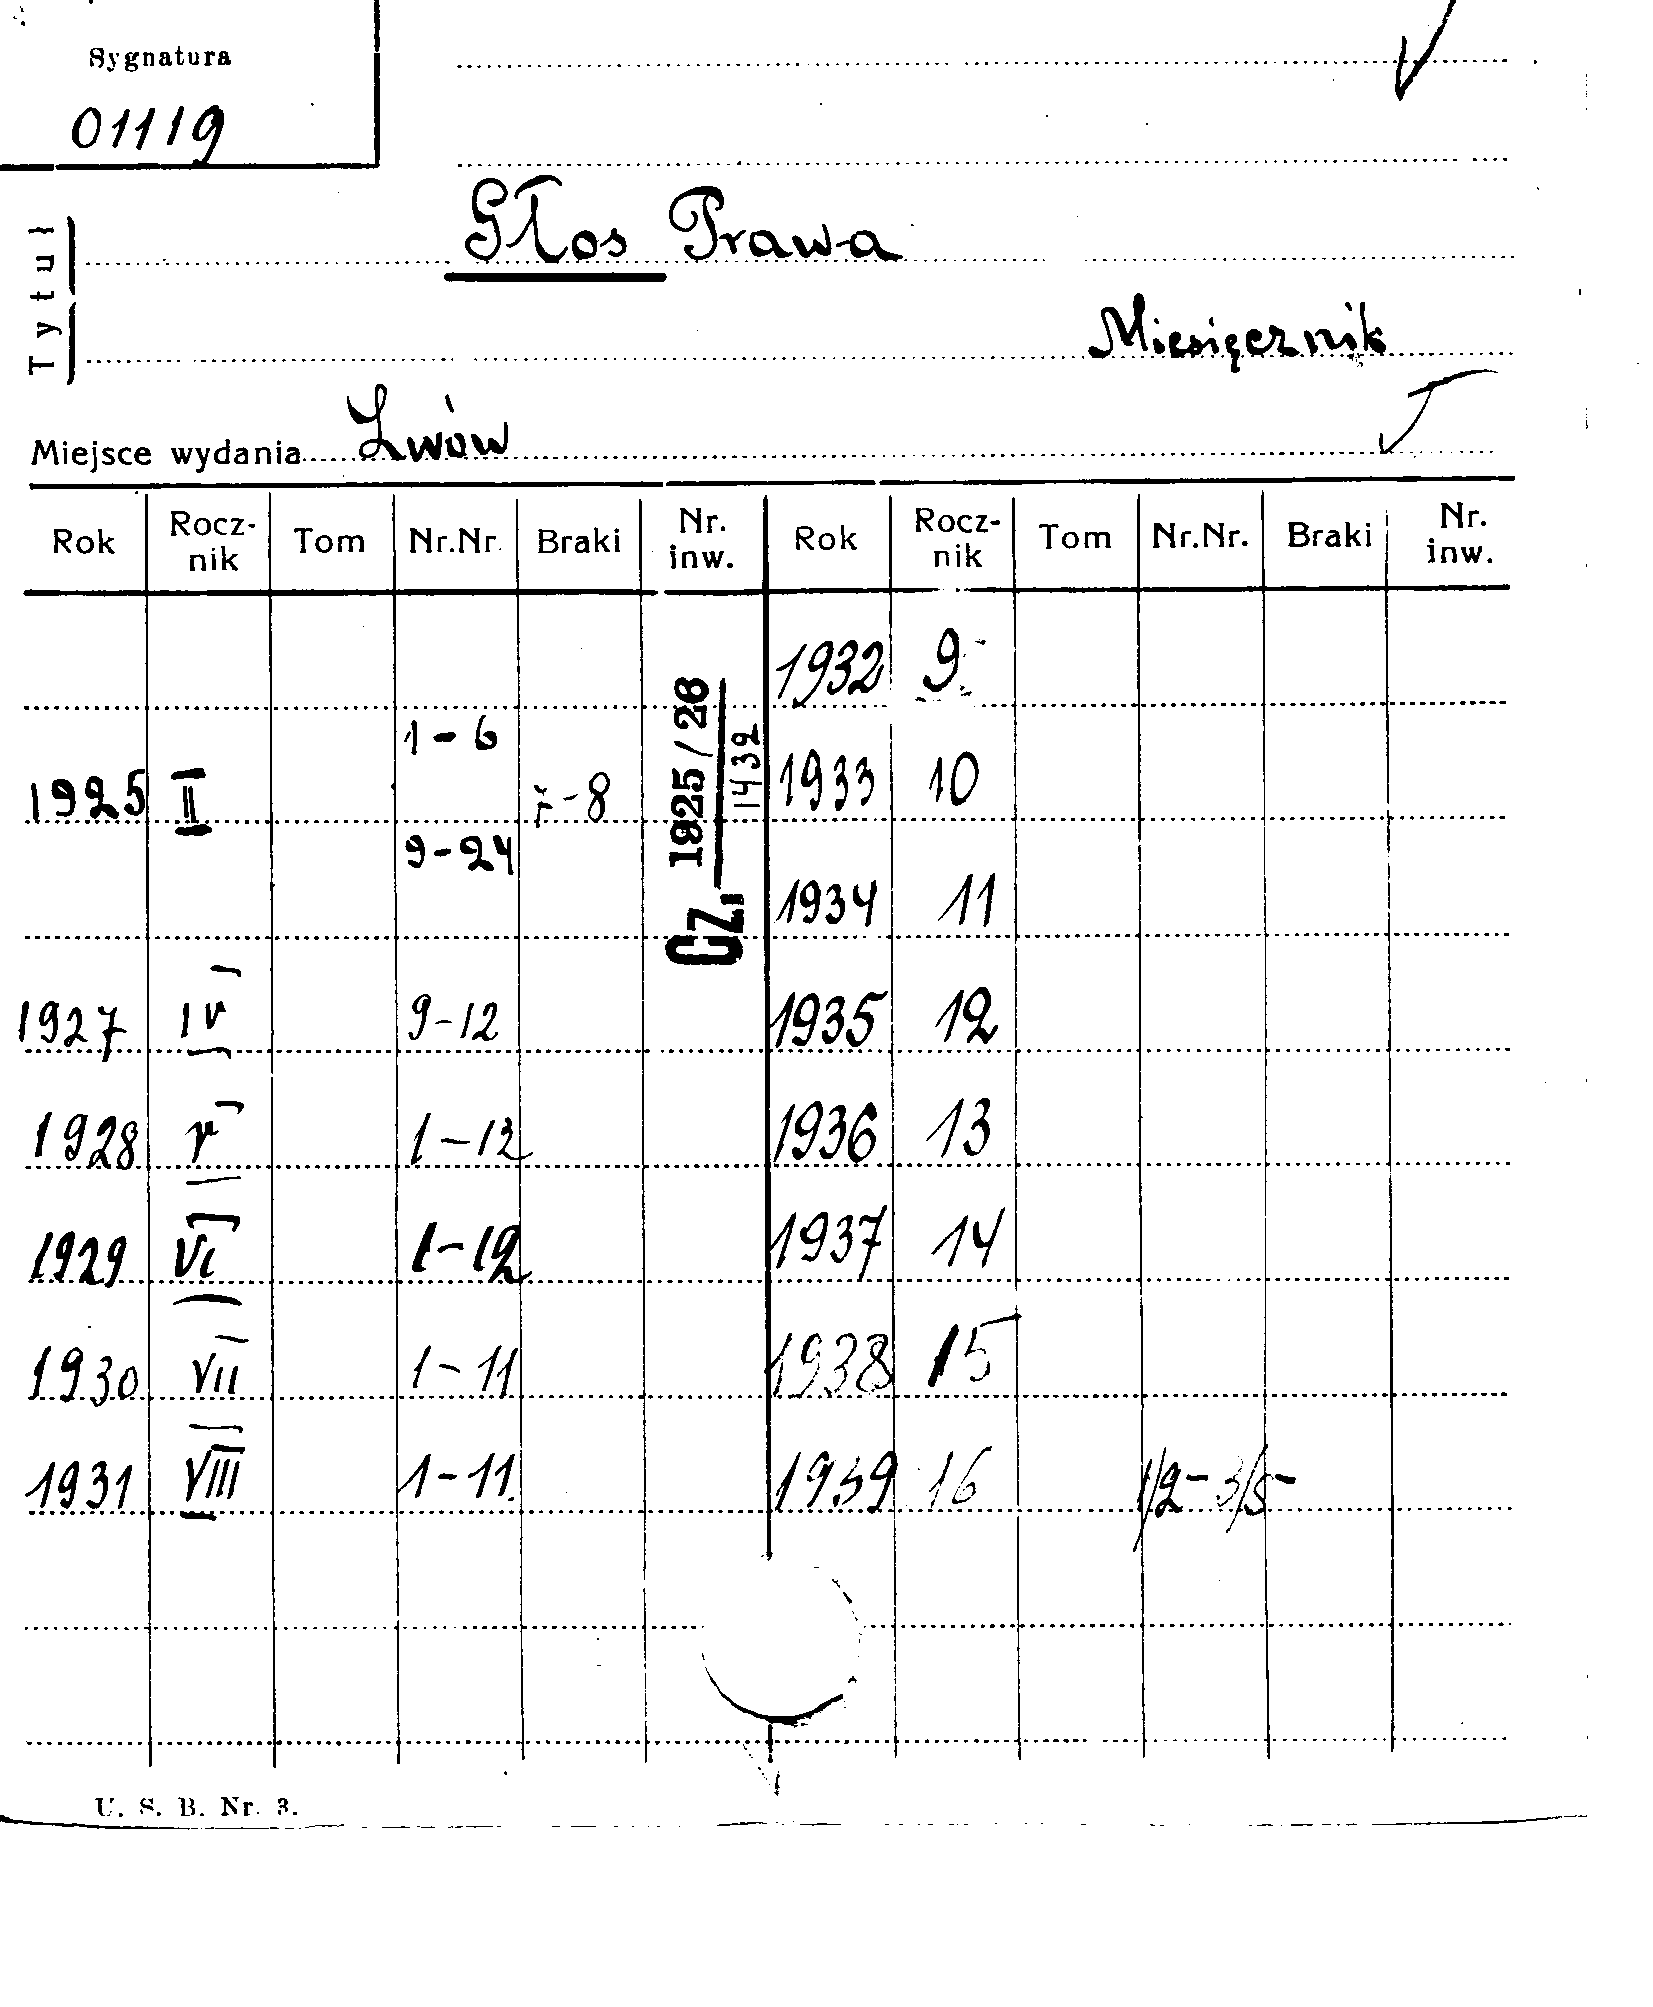 Sygnatura
01119
Tytuł
Głos Prawa
Miesięcznik
Miejsce wydania Lwów
Rok Rocz-nik Tom Nr.Nr. Braki Nr. inw. Rok Rocz-nik Tom Nr.Nr. Braki Nr. inw.
1932 9
1-6
1925 II -8 1933 10
9-24
Cz. 1925/26
1432
1934 11
1927 IV 9-12 1935 12
1928 V 1-12 1936 13
1929 VI 1-12 1937 14
1930 VII 1-11 1938 15
1931 VIII 1-11. 1939 16 1/2-3/5-
U. S. B. Nr. 3.